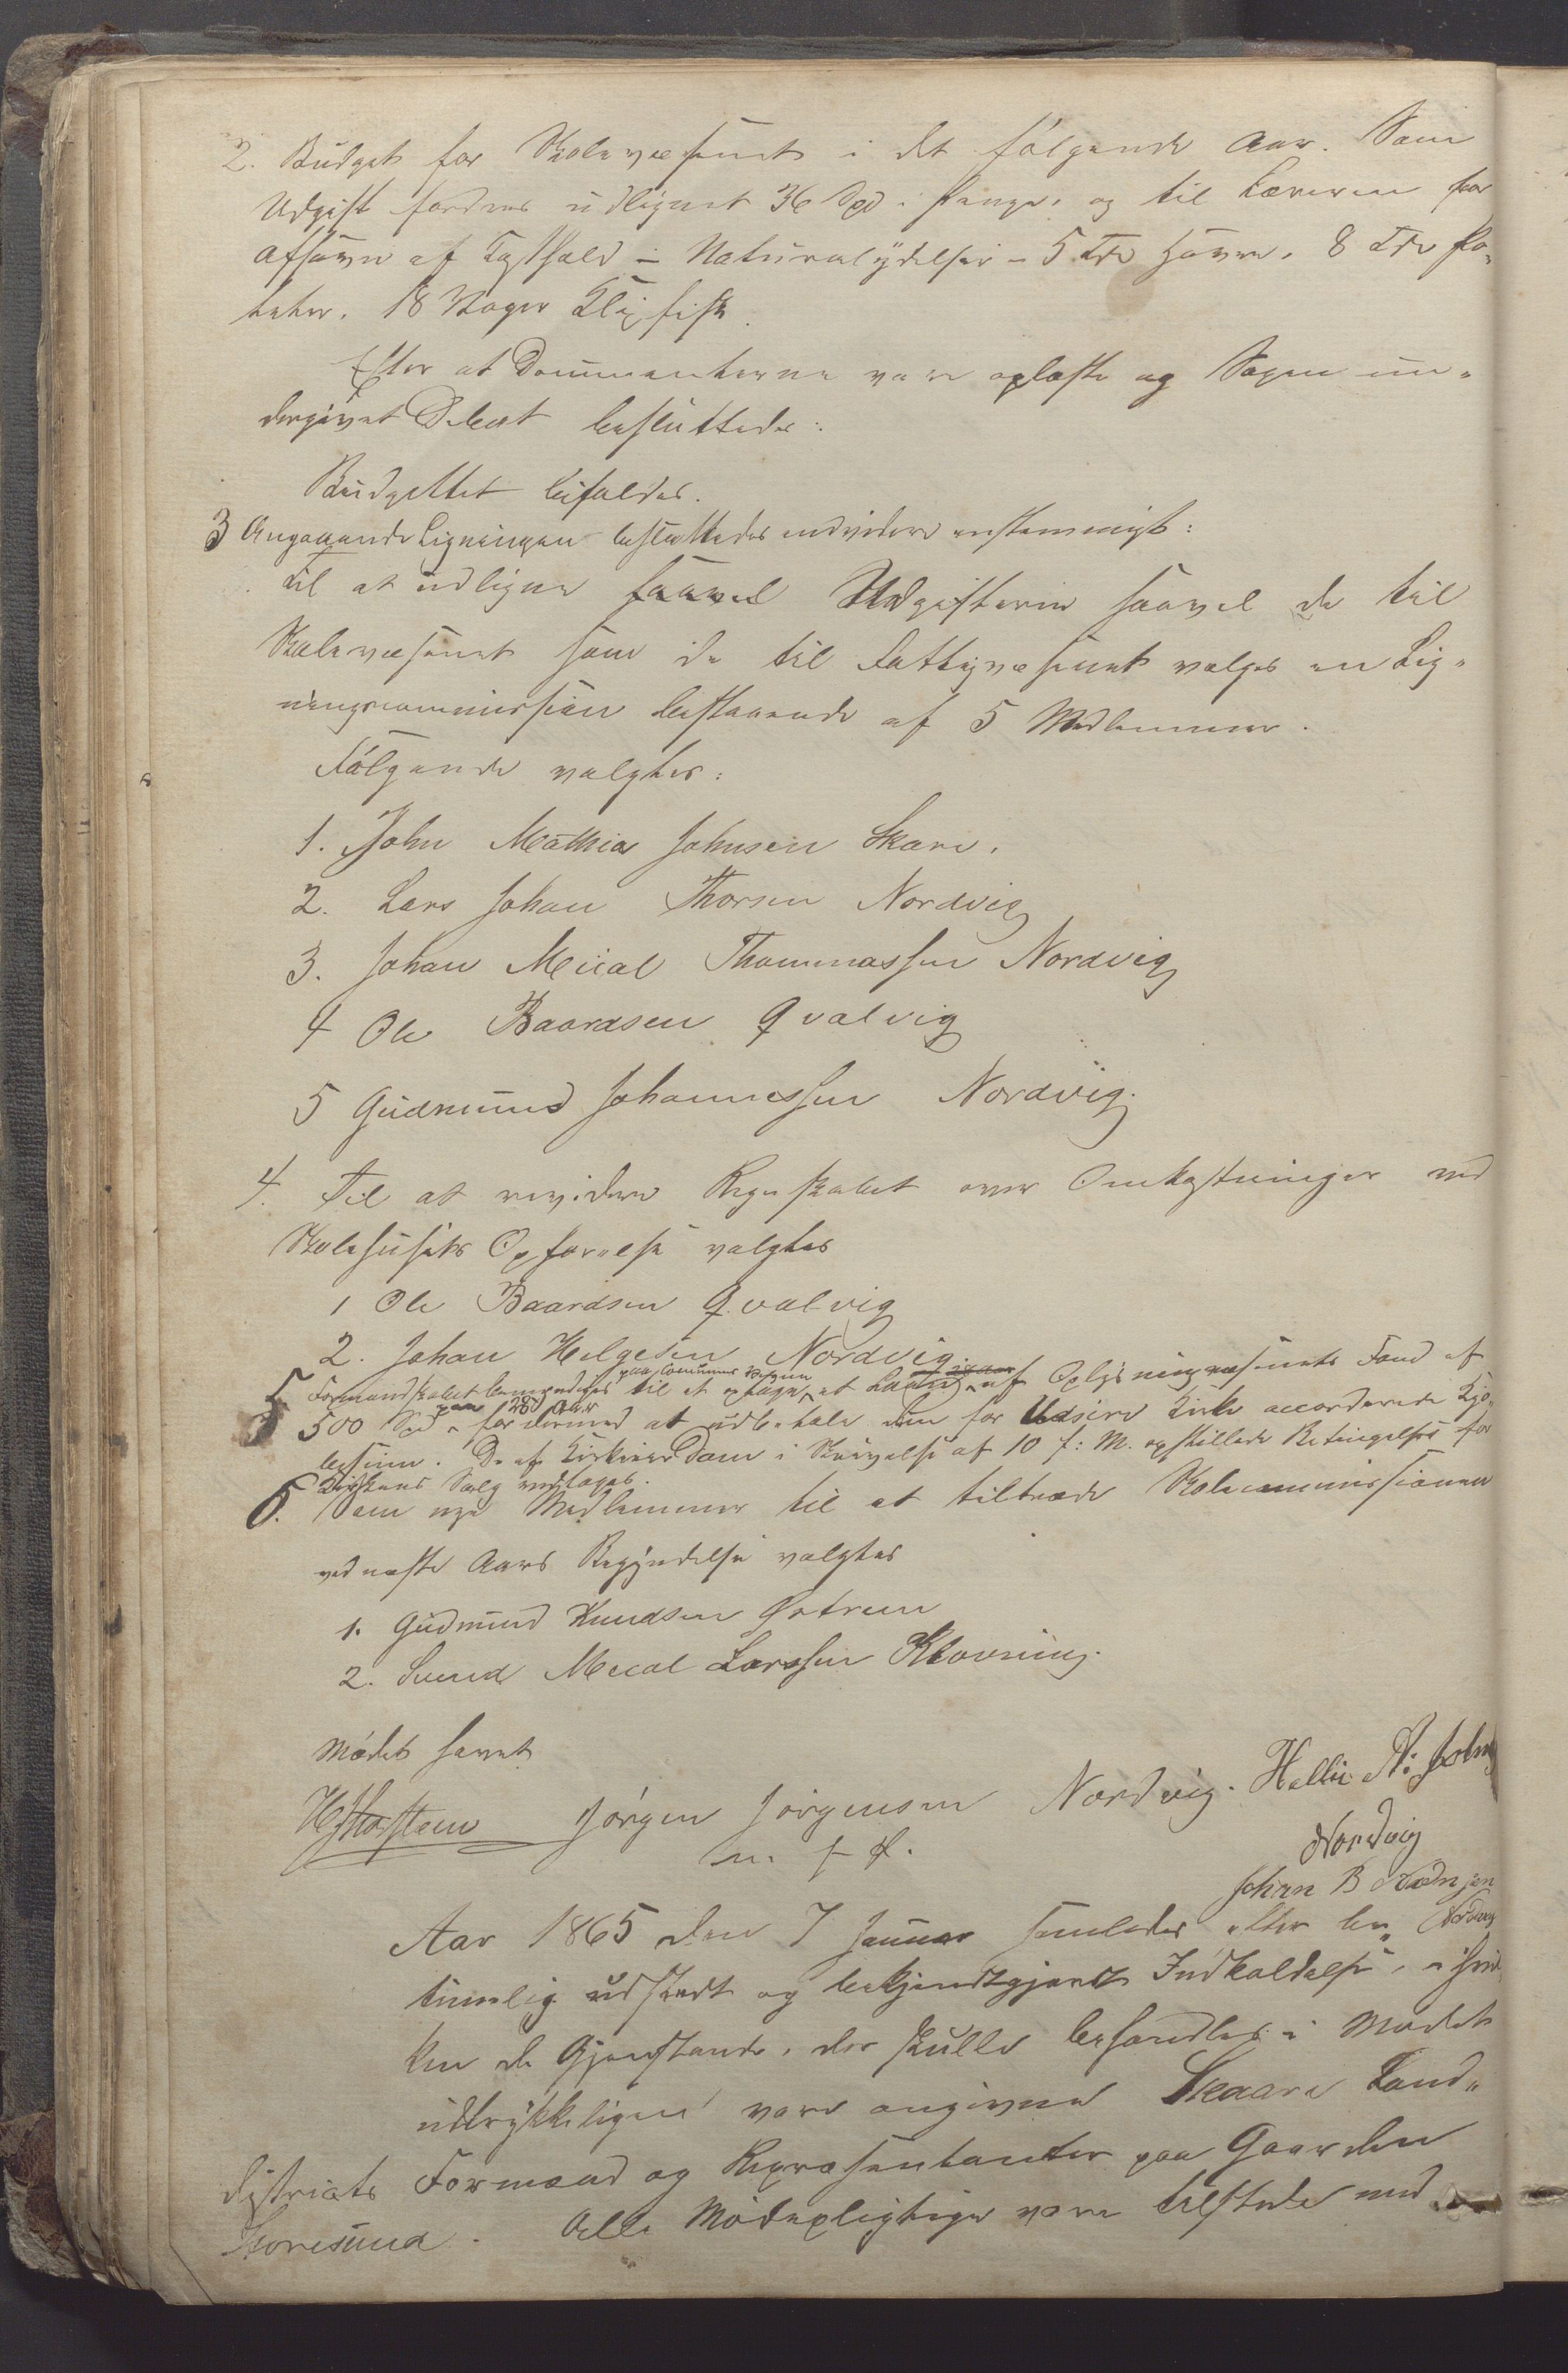 2. Budget for Skolevæsenet i det følgende Aar. Som
Udgift fordres udlignet 36 Spd i Penge, og til Læreren for
Afsavn af Kosthold i Naturalydelser – 5 Tdr Havre, 8 Tdr Po-
teter, 18 Voger Klipfisk.
Efter at Documenterne vare oplæste og Sagen un-
dergivet Debat besluttedes:
Budgettet bifaldes.
3 Angaaende Ligningen besluttedes endvidere enstemmigt:
Til at udligne saavel Udgifterne saavel de til
Skolevæsenet som de til Fattigvæsenet vælges en Lig-
ningscommission bestaaende af 5 Medlemmer.
Følgende valgtes:
1. John Mathias Johnsen Skare.
2. Lars Johan Thorsen Nordvig
3. Johan Mical Thommassen Nordvig
4 Ole Baardsen Qvalvig
5 Gudmund Johannessen Nordvig.
4. Til at revidere Regnskabet over Omkostninger ved
Skolehusets Opførelse valgtes
1 Ole Baardsen Qvalvig
2. Johan Helgesen Nordvig.
5 Formandskabet bemyndiges til at optage paa Communens Vegne et Laan af Oplysningsvæsenets Fond af
500 Spd paa 28 Aar for dermed at udbetale den for Udsire Kirke accorderede Kjø-
besum. De af Kirkedep. i Skrivelse af 10 f: M. opstillede Betingelser for
Kirkens Salg vedtages.
6. Som nye Medlemmer til at tiltræde Skolecommissionen
ved næste Aars Begyndelse valgtes
1. Gudmund Knudsen Østrem
2. Svend Mical Larssen Klovning.
Mødet hævet
Jørgen Jørgensen Nordvig. Hellie
m. f. P. Nordvig
Johan B
Aar 1865 den 7 Januar samledes efter be- Nordvig
timelig udstedt og bekjendtgjordt Indkaldelse, i hvil-
ken de Gjenstande, der skulle behandles i Mødet
udtrykkeligen vare angivne Skaare Land-
districts Formænd og Repræsentanter paa Gaarden
Storesund. Alle Mødepligtige vare tilstede med